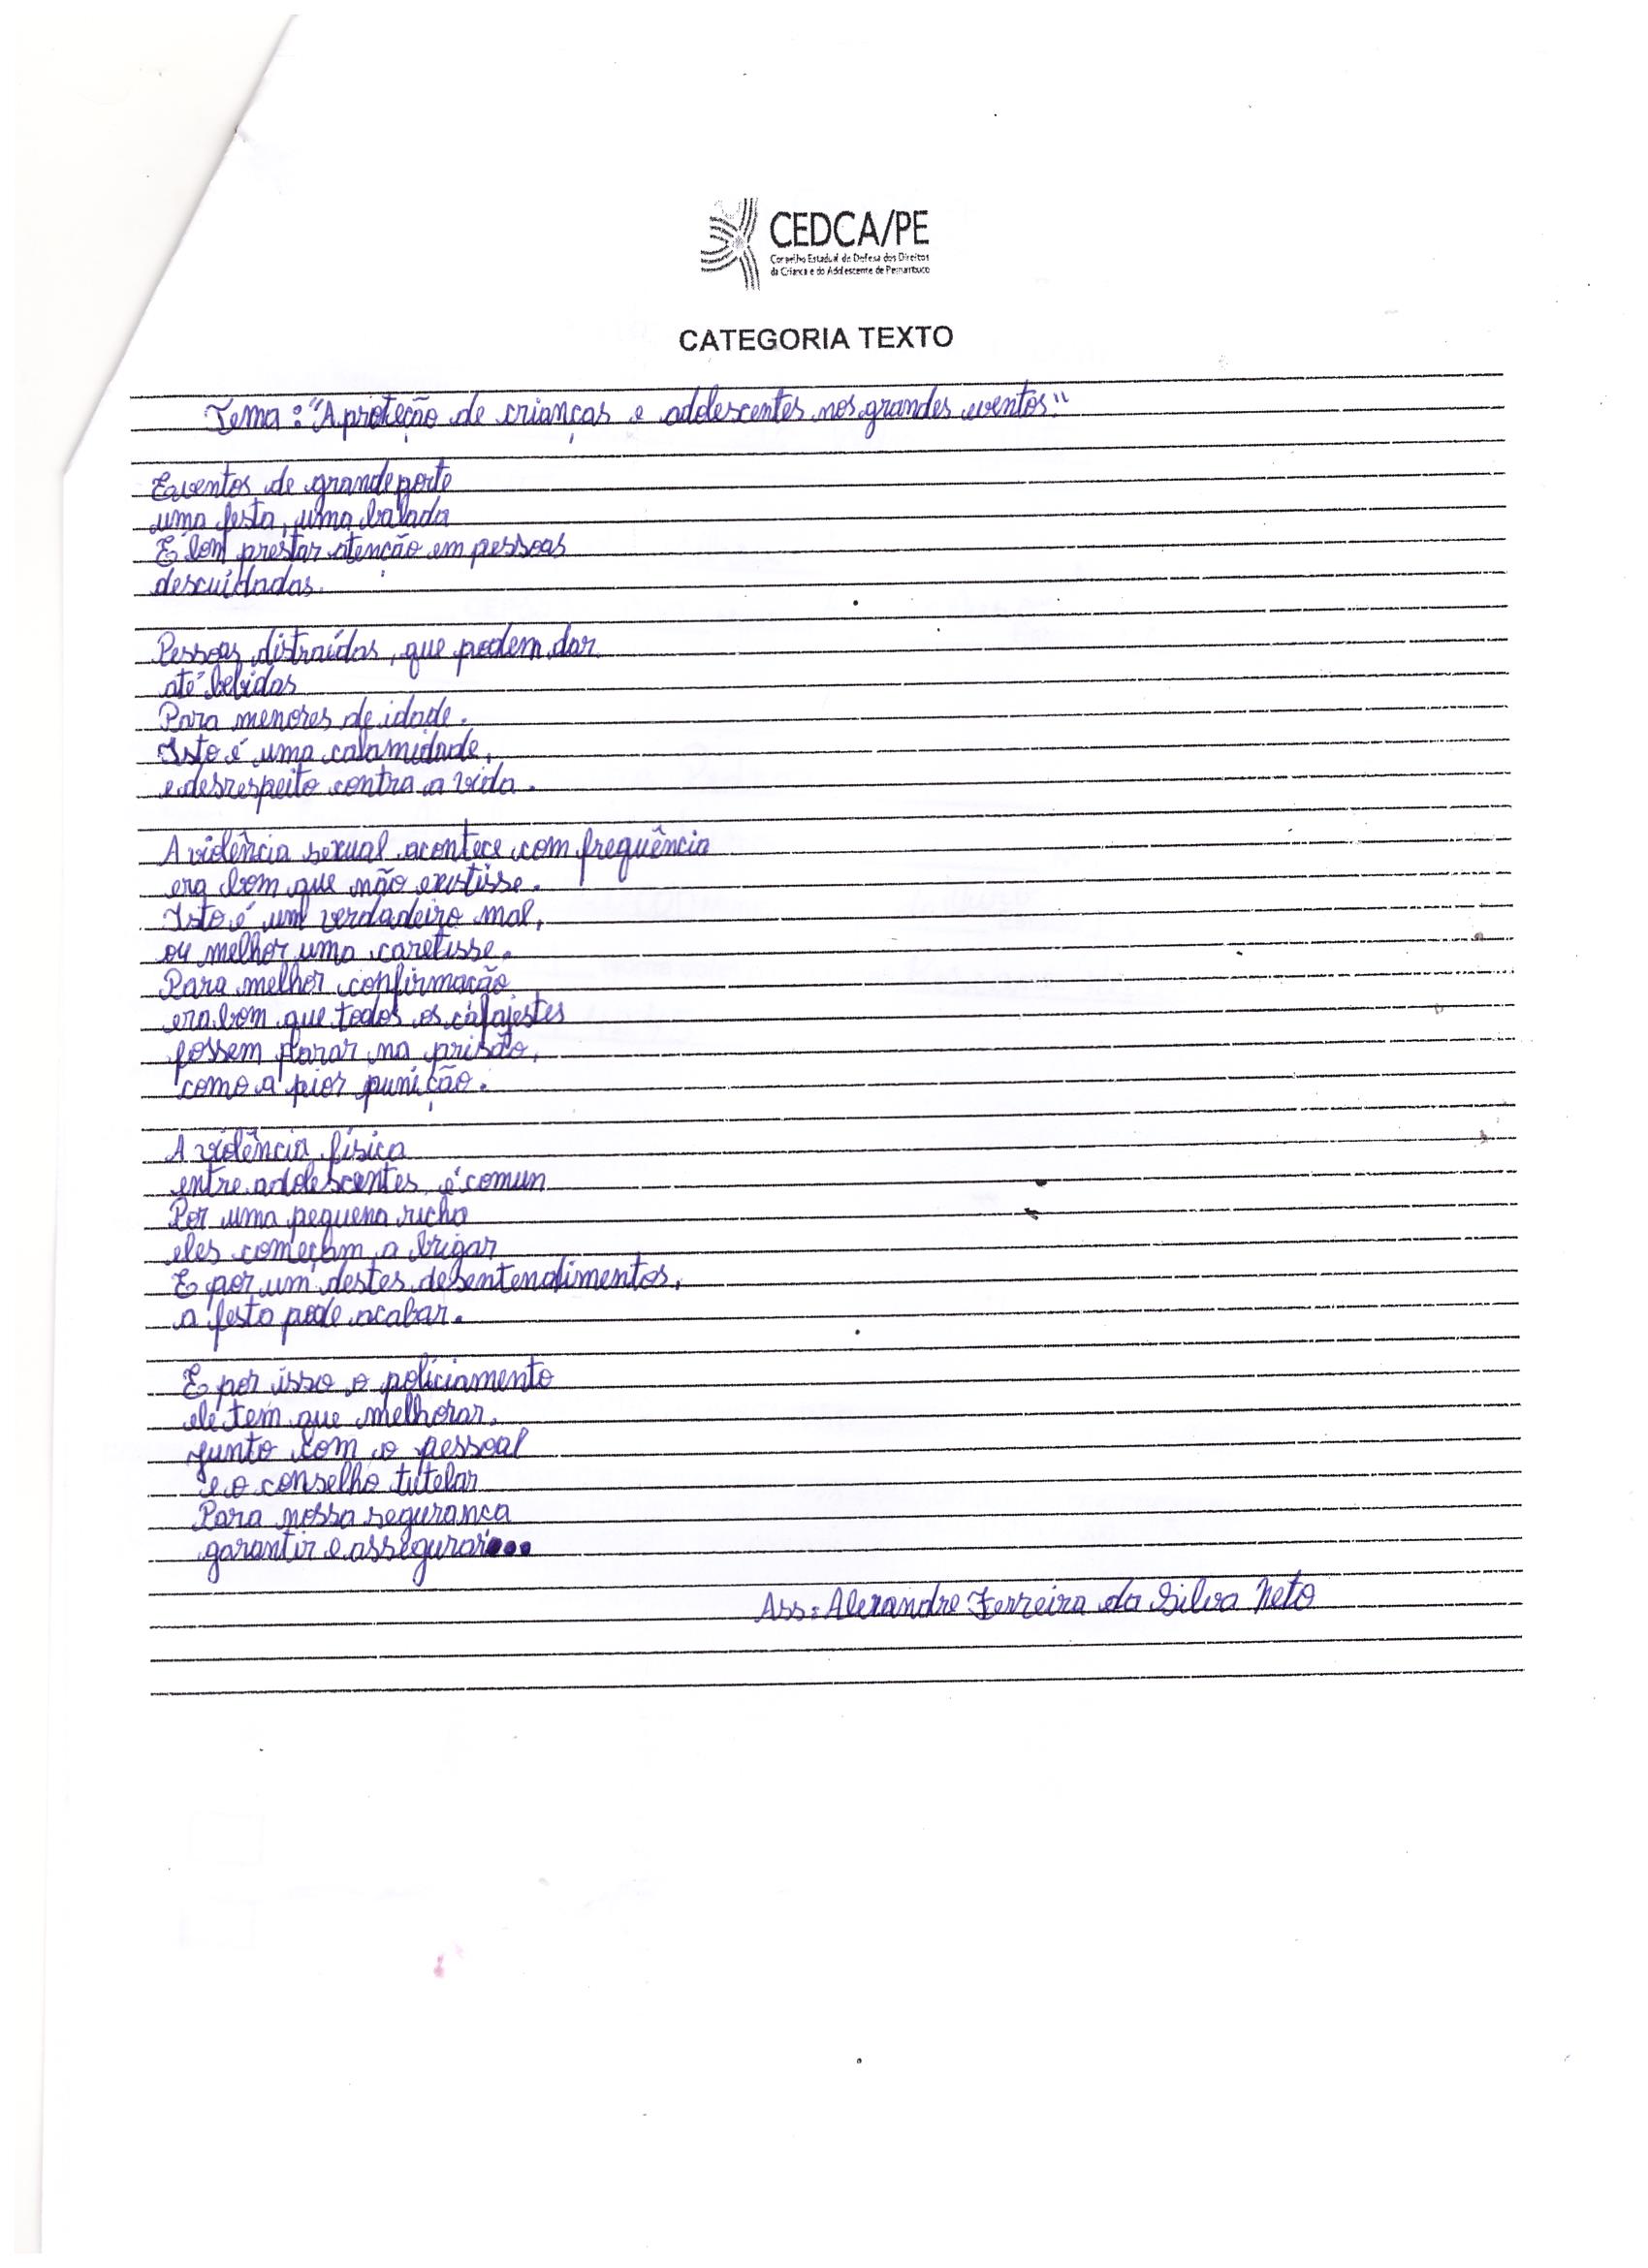 CEDCA/PE
Conselho Estadual de Defesa dos Direitos
da Criança e do Adolescente de Pernambuco
CATEGORIA TEXTO
Tema: "A proteção de crianças e adolescentes nos grandes eventos."
Eventos de grande porte
uma festa, uma balada
É bom prestar atenção em pessoas
descuidadas.
Pessoas distraídas, que podem dar
até bebidas
Para menores de idade.
Isto é uma calamidade,
e desrespeito contra a vida.
A violência sexual acontece com frequência
era bom que não existisse.
Isto é um verdadeiro mal,
ou melhor uma caretisse.
Para melhor confirmação
era bom que todos os cafajestes
fossem parar na prisão,
como a pior punição.
A violência física
entre adolescentes é comun
Por uma pequena richa
eles começam a brigar
E por um destes desentendimentos,
a festa pode acabar.
E por isso o policiamento
ele tem que melhorar,
junto com o pessoal
e o conselho tutelar
Para nossa segurança
garantir e assegurar...
Ass: Alexandre Ferreira da Silva Neto